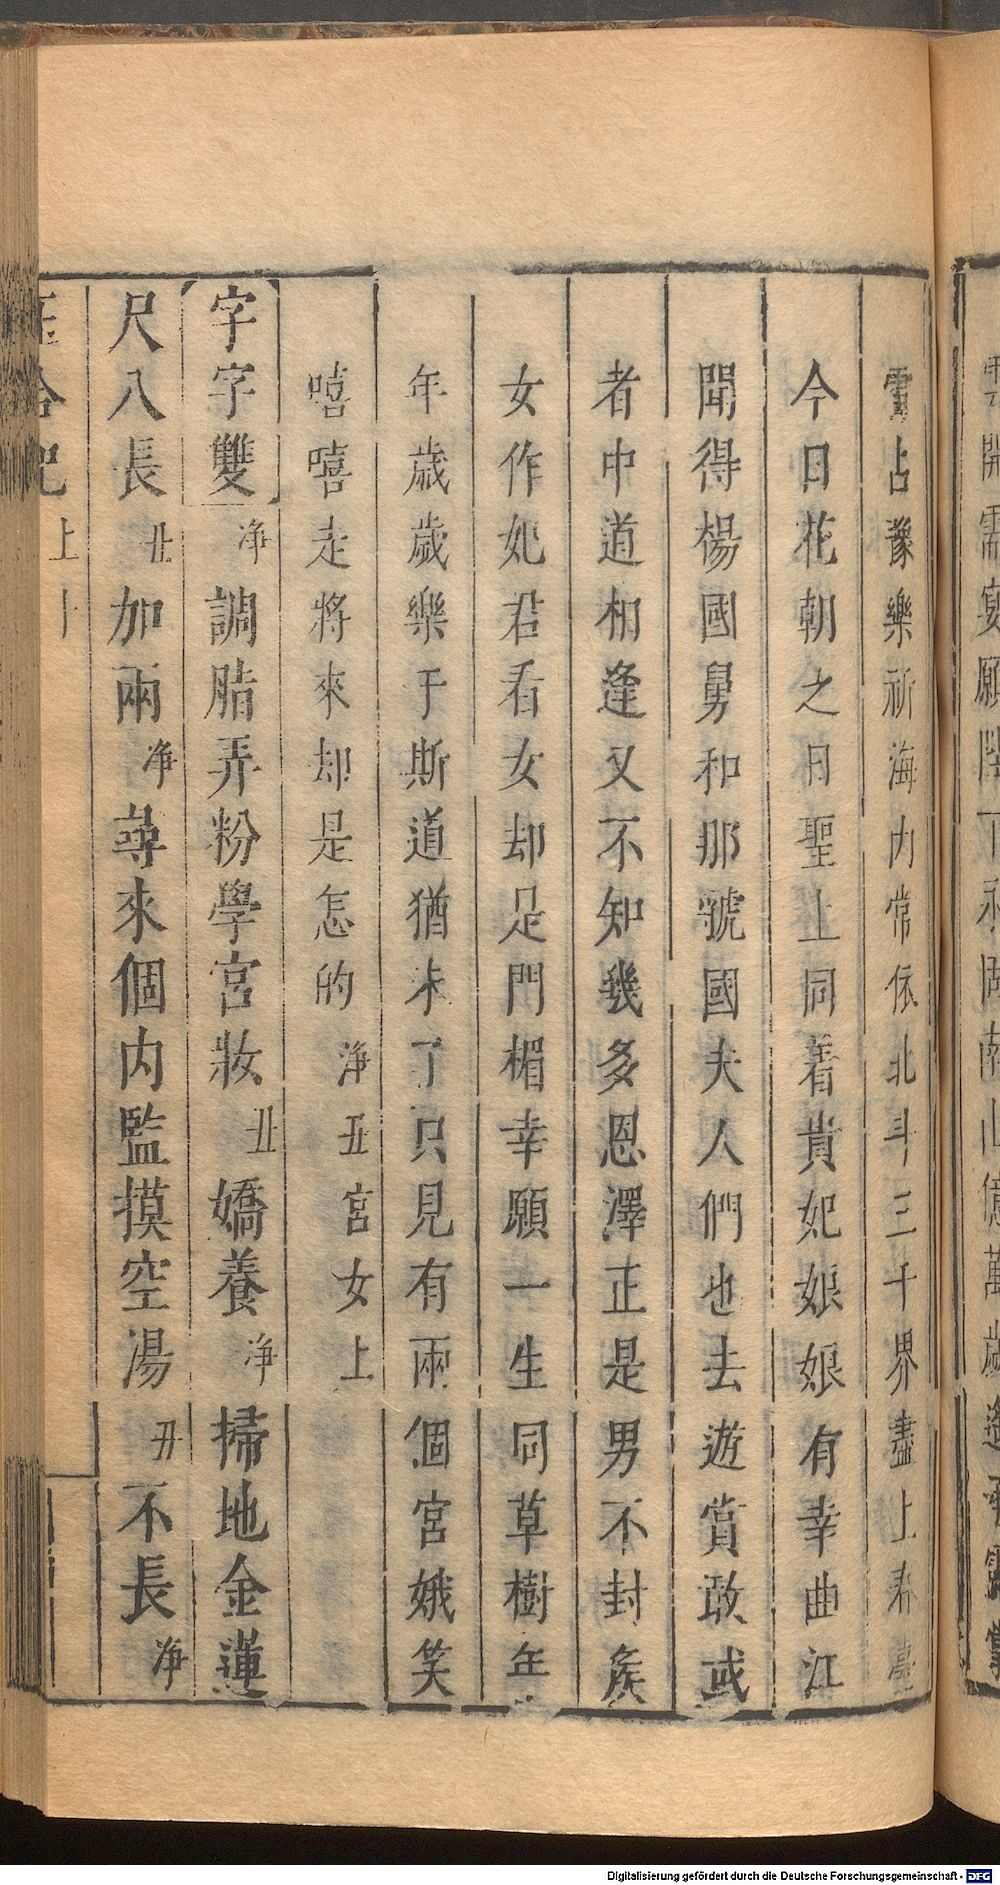 雲開需宴願陛下永固南山億萬歲
霄占豫樂祈海内常依北斗三千界盡上春臺
今日花朝之日聖上同着貴妃娘娘有幸曲江
聞得楊國舅和那虢國夫人們也去遊賞敢或
者中道相逢又不知幾多恩澤正是男不封矦
女作妃君看女却是門楣幸願一生同草樹年
年歲歲樂于斯道猶未了只見有兩個宮娥笑
嘻嘻走將來却是怎的净丑宮女上
字字雙净調脂弄粉學宮妝丑嬌養净掃地金蓮
尺八長丑加兩净尋來個内監摸空湯丑不長净
合記上
Digitalisierung gefördert durch die Deutsche Forschungsgemeinschaft - DFG